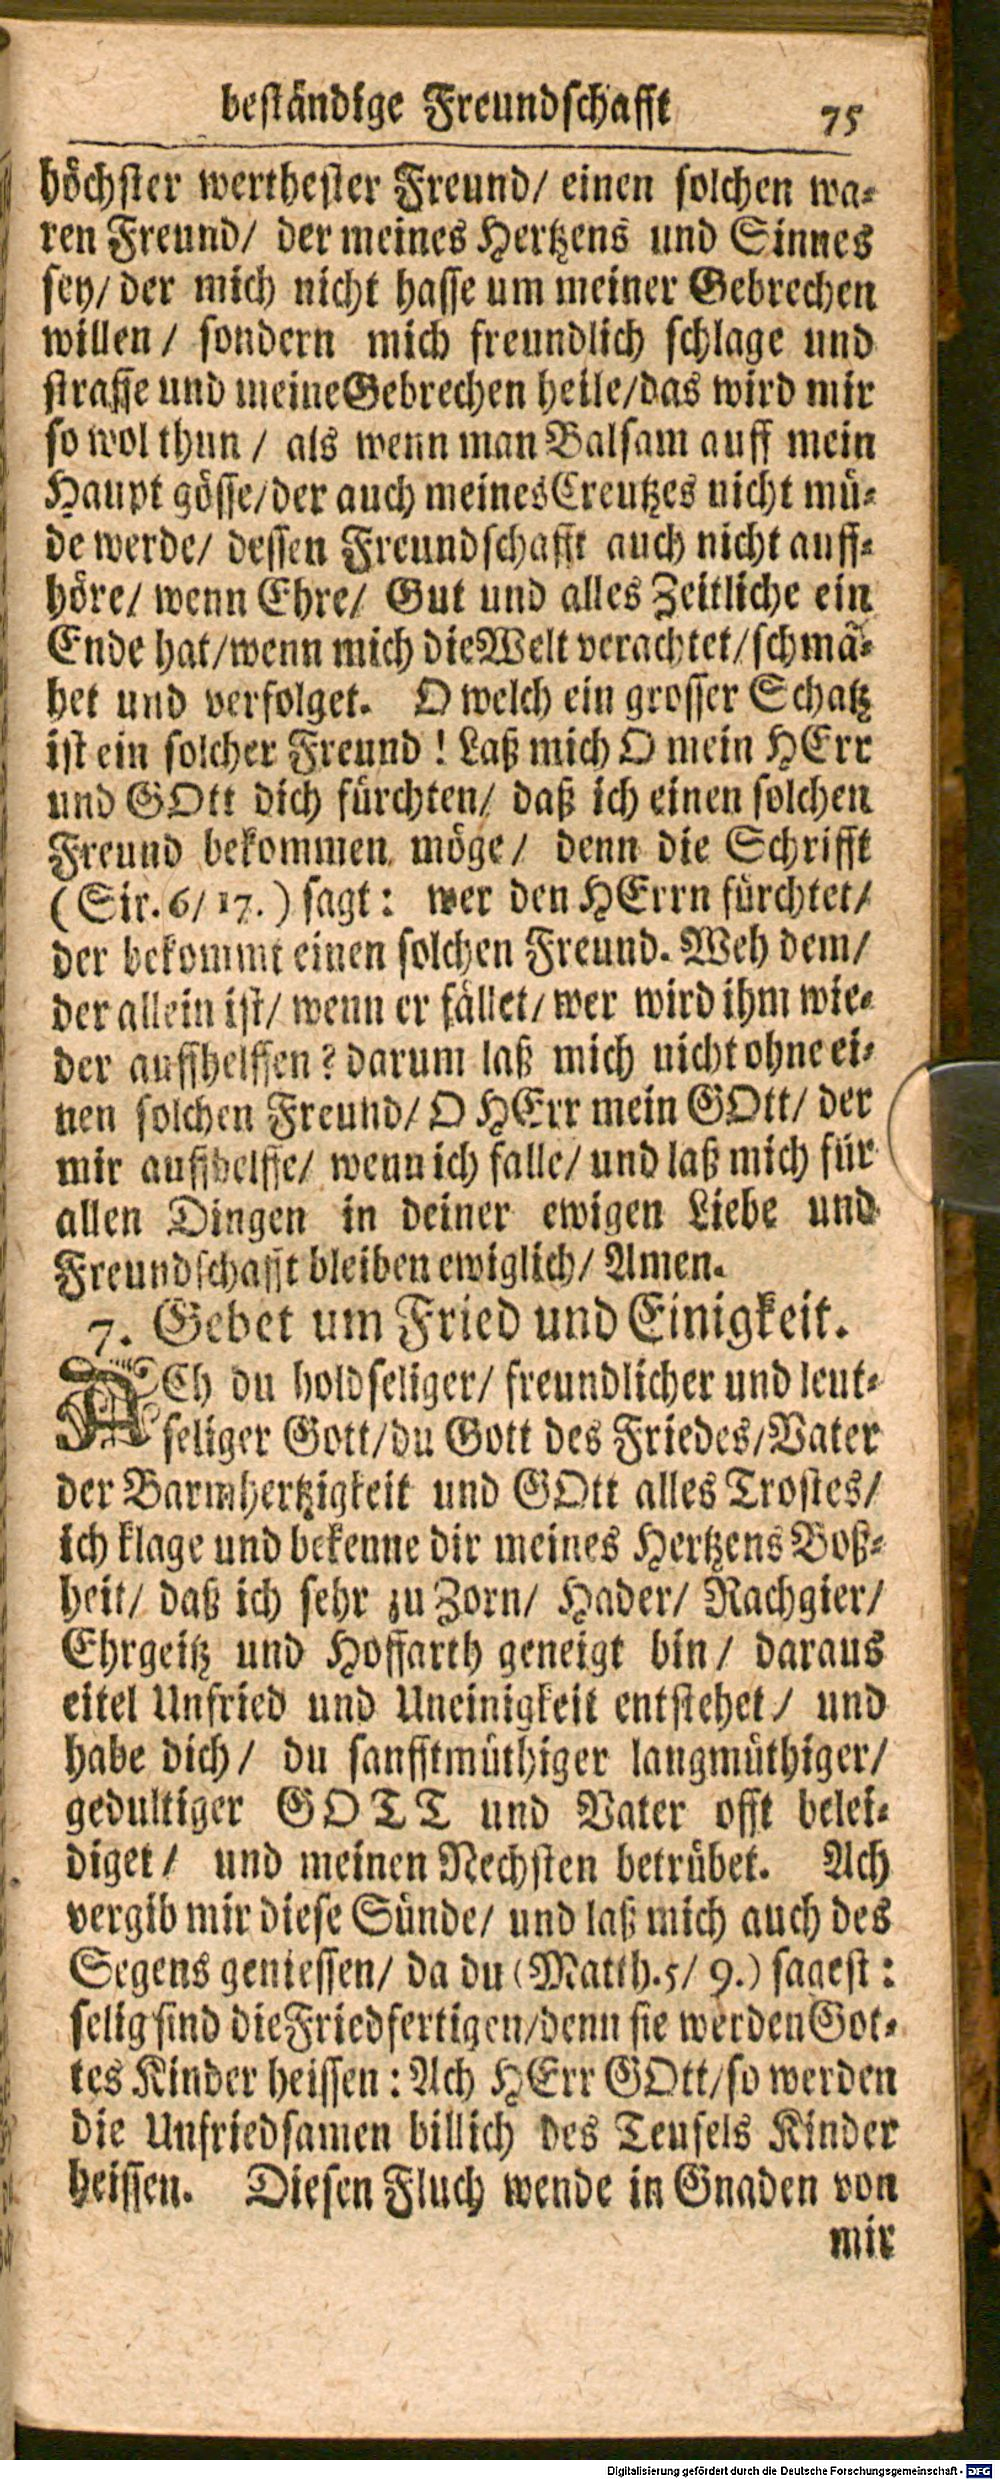 beständige Freundschafft 75
höchster werthester Freund/ einen solchen wa-
ren Freund/ der meines Hertzens und Sinnes
sey/ der mich nicht hasse um meiner Gebrechen
willen/ sondern mich freundlich schlage und
straffe und meine Gebrechen heile/ das wird mir
so wol thun/ als wenn man Balsam auff mein
Haupt gösse/ der auch meines Creutzes nicht mü-
de werde/ dessen Freundschafft auch nicht auff-
höre/ wenn Ehre/ Gut und alles Zeitliche ein
Ende hat/ wenn mich die Welt verachtet/ schmä-
het und verfolget. O welch ein grosser Schatz
ist ein solcher Freund! Laß mich O mein HErr
und GOtt dich fürchten/ daß ich einen solchen
Freund bekommen möge/ denn die Schrifft
(Sir. 6/ 17.) sagt: wer den HErrn fürchtet/
der bekommt einen solchen Freund. Weh dem/
der allein ist/ wenn er fället/ wer wird ihm wie-
der auffhelffen? darum laß mich nicht ohne ei-
nen solchen Freund/ O HErr mein GOtt/ der
mir auffhelffe/ wenn ich falle/ und laß mich für
allen Dingen in deiner ewigen Liebe und
Freundschafft bleiben ewiglich/ Amen.
7. Gebet um Fried und Einigkeit.
ACh du holdseliger/ freundlicher und leut-
seliger Gott/ du Gott des Friedes/ Vater
der Barmhertzigkeit und GOtt alles Trostes/
ich klage und bekenne dir meines Hertzens Boß-
heit/ daß ich sehr zu Zorn/ Hader/ Rachgier/
Ehrgeitz und Hoffarth geneigt bin/ daraus
eitel Unfried und Uneinigkeit entstehet/ und
habe dich/ du sanfftmüthiger langmüthiger/
gedultiger GOTT und Vater offt belei-
diget/ und meinen Nechsten betrübet. Ach
vergib mir diese Sünde/ und laß mich auch des
Segens geniessen/ da du (Matth. 5/ 9.) sagest:
selig sind die Friedfertigen/ denn sie werden Got-
tes Kinder heissen: Ach HErr GOtt/ so werden
die Unfriedsamen billich des Teufels Kinder
heissen. Diesen Fluch wende in Gnaden von
mir
Digitalisierung gefördert durch die Deutsche Forschungsgemeinschaft - DFG